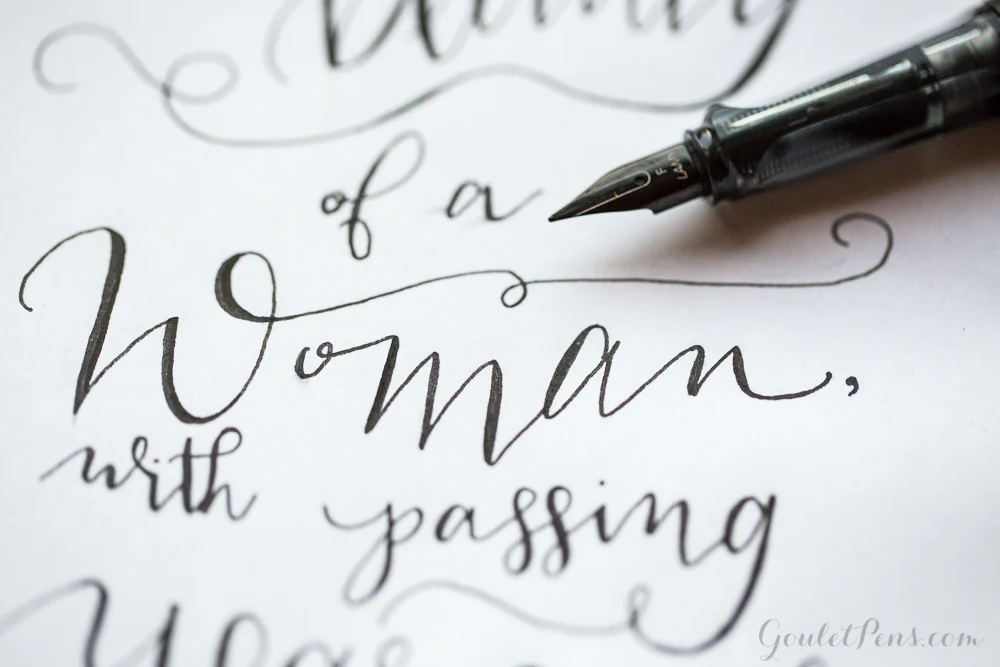 of a
F
LAMY
Woman,
with passing
GouletPens.com